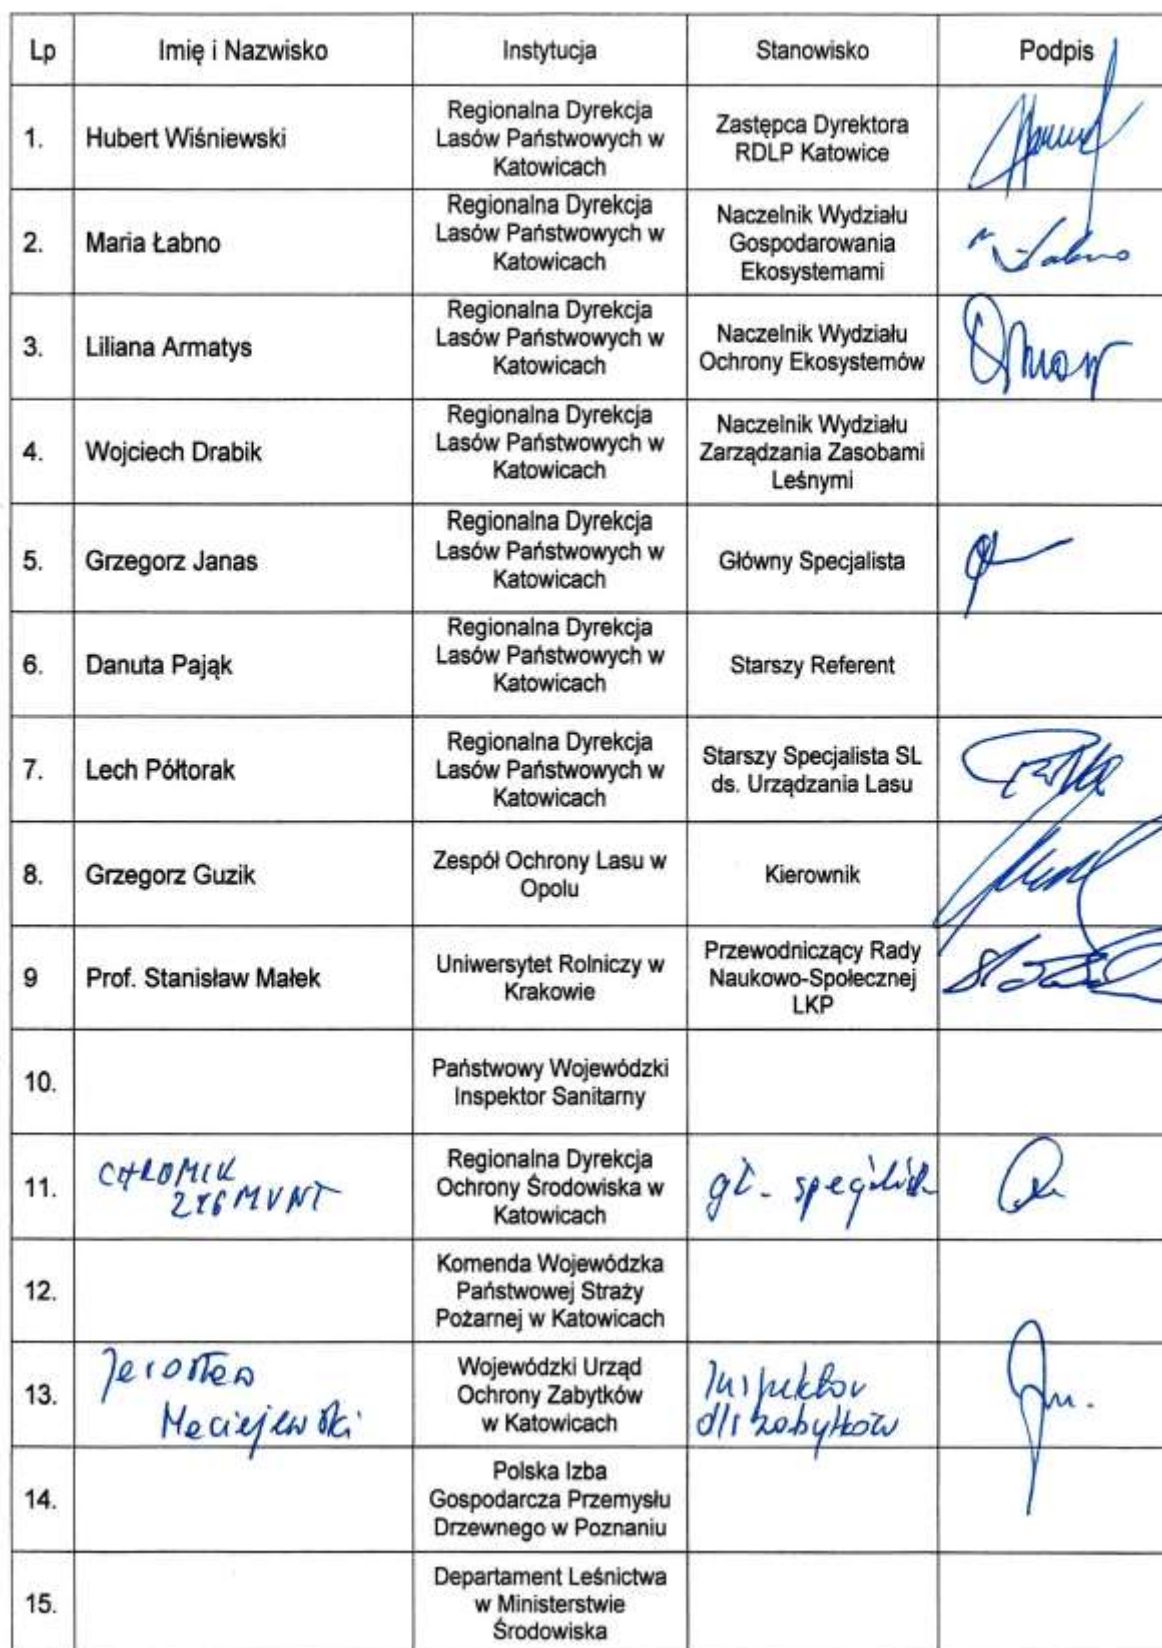 Lp Imię i Nazwisko Instytucja Stanowisko Podpis
1. Hubert Wiśniewski
Regionalna Dyrekcja
Lasów Państwowych w
Katowicach
Zastępca Dyrektora
RDLP Katowice
2. Maria Łabno
Regionalna Dyrekcja
Lasów Państwowych w
Katowicach
Naczelnik Wydziału
Gospodarowania
Ekosystemami
3. Liliana Armatys
Regionalna Dyrekcja
Lasów Państwowych w
Katowicach
Naczelnik Wydziału
Ochrony Ekosystemów
4. Wojciech Drabik
Regionalna Dyrekcja
Lasów Państwowych w
Katowicach
Naczelnik Wydziału
Zarządzania Zasobami
Leśnymi
5. Grzegorz Janas
Regionalna Dyrekcja
Lasów Państwowych w
Katowicach
Główny Specjalista
6. Danuta Pająk
Regionalna Dyrekcja
Lasów Państwowych w
Katowicach
Starszy Referent
7. Lech Półtorak
Regionalna Dyrekcja
Lasów Państwowych w
Katowicach
Starszy Specjalista SL
ds. Urządzania Lasu
8. Grzegorz Guzik
Zespół Ochrony Lasu w
Opolu
Kierownik
9 Prof. Stanisław Małek
Uniwersytet Rolniczy w
Krakowie
Przewodniczący Rady
Naukowo-Społecznej
LKP
10.
Państwowy Wojewódzki
Inspektor Sanitarny
11.
CHROMIK
ZYGMUNT
Regionalna Dyrekcja
Ochrony Środowiska w
Katowicach
gł. specjalista
12.
Komenda Wojewódzka
Państwowej Straży
Pożarnej w Katowicach
13.
Jarosław
Maciejewski
Wojewódzki Urząd
Ochrony Zabytków
w Katowicach
Inspektor
d/s zabytków
14.
Polska Izba
Gospodarcza Przemysłu
Drzewnego w Poznaniu
15.
Departament Leśnictwa
w Ministerstwie
Środowiska